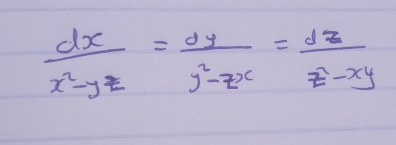 dx/(x²-yz) = dy/(y²-zx) = dz/(z²-xy)